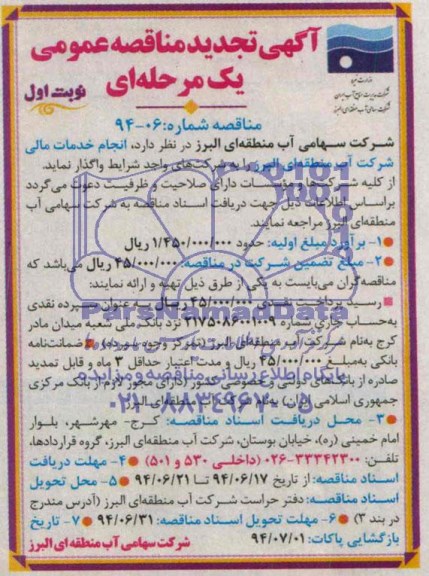 آگهی تجدید مناقصه عمومی
یک مرحله‌ای
نوبت اول
وزارت نیرو
شرکت مدیریت منابع آب ایران
شرکت سهامی آب منطقه‌ای البرز
مناقصه شماره: ۰۶-۹۴
شرکت سهامی آب منطقه‌ای البرز در نظر دارد، انجام خدمات مالی
شرکت آب منطقه‌ای البرز را به شرکت‌های واجد شرایط واگذار نماید.
از کلیه شرکت‌ها و مؤسسات دارای صلاحیت و ظرفیت دعوت می‌گردد
براساس اطلاعات ذیل جهت دریافت اسناد مناقصه به شرکت سهامی آب
منطقه‌ای البرز مراجعه نمایند.
۱- برآورد مبلغ اولیه: حدود ۱/۴۵۰/۰۰۰/۰۰۰ ریال
۲- مبلغ تضمین شرکت در مناقصه: ۴۵/۰۰۰/۰۰۰ ریال می‌باشد که
مناقصه‌گران می‌بایست به یکی از طرق ذیل تهیه و ارائه نمایند:
رسید پرداخت نقدی ۴۵/۰۰۰/۰۰۰ ریال به عنوان سپرده نقدی
به‌حساب جاری شماره ۲۱۷۵۰۸۶۰۰۱۰۰۹ نزد بانک ملی شعبه میدان مادر
کرج به‌نام شرکت آب منطقه‌ای البرز (تمرکز وجوه سپرده) ضمانت‌نامه
بانکی به‌مبلغ ۴۵/۰۰۰/۰۰۰ ریال و مدت اعتبار حداقل ۳ ماه و قابل تمدید
صادره از بانک‌های دولتی و خصوصی کشور (دارای مجوز لازم از بانک مرکزی
جمهوری اسلامی ایران) به‌نام شرکت آب منطقه‌ای البرز
۳- محل دریافت اسناد مناقصه: کرج- مهرشهر، بلوار
امام خمینی (ره)، خیابان بوستان، شرکت آب منطقه‌ای البرز، گروه قراردادها،
تلفن: ۳۳۳۴۲۳۰۰-۰۲۶ (داخلی ۵۳۰ و ۵۰۱) ۴- مهلت دریافت
اسناد مناقصه: از تاریخ ۹۴/۰۶/۱۷ تا ۹۴/۰۶/۲۱ ۵- محل تحویل
اسناد مناقصه: دفتر حراست شرکت آب منطقه‌ای البرز (آدرس مندرج
در بند ۳) ۶- مهلت تحویل اسناد مناقصه: ۹۴/۰۶/۳۱ ۷- تاریخ
بازگشایی پاکات: ۹۴/۰۷/۰۱
شرکت سهامی آب منطقه ای البرز
ParsNamadData
پایگاه اطلاع رسانی مناقصه و مزایده
۰۲۱-۸۸۳۴۹۶۷۰-۵